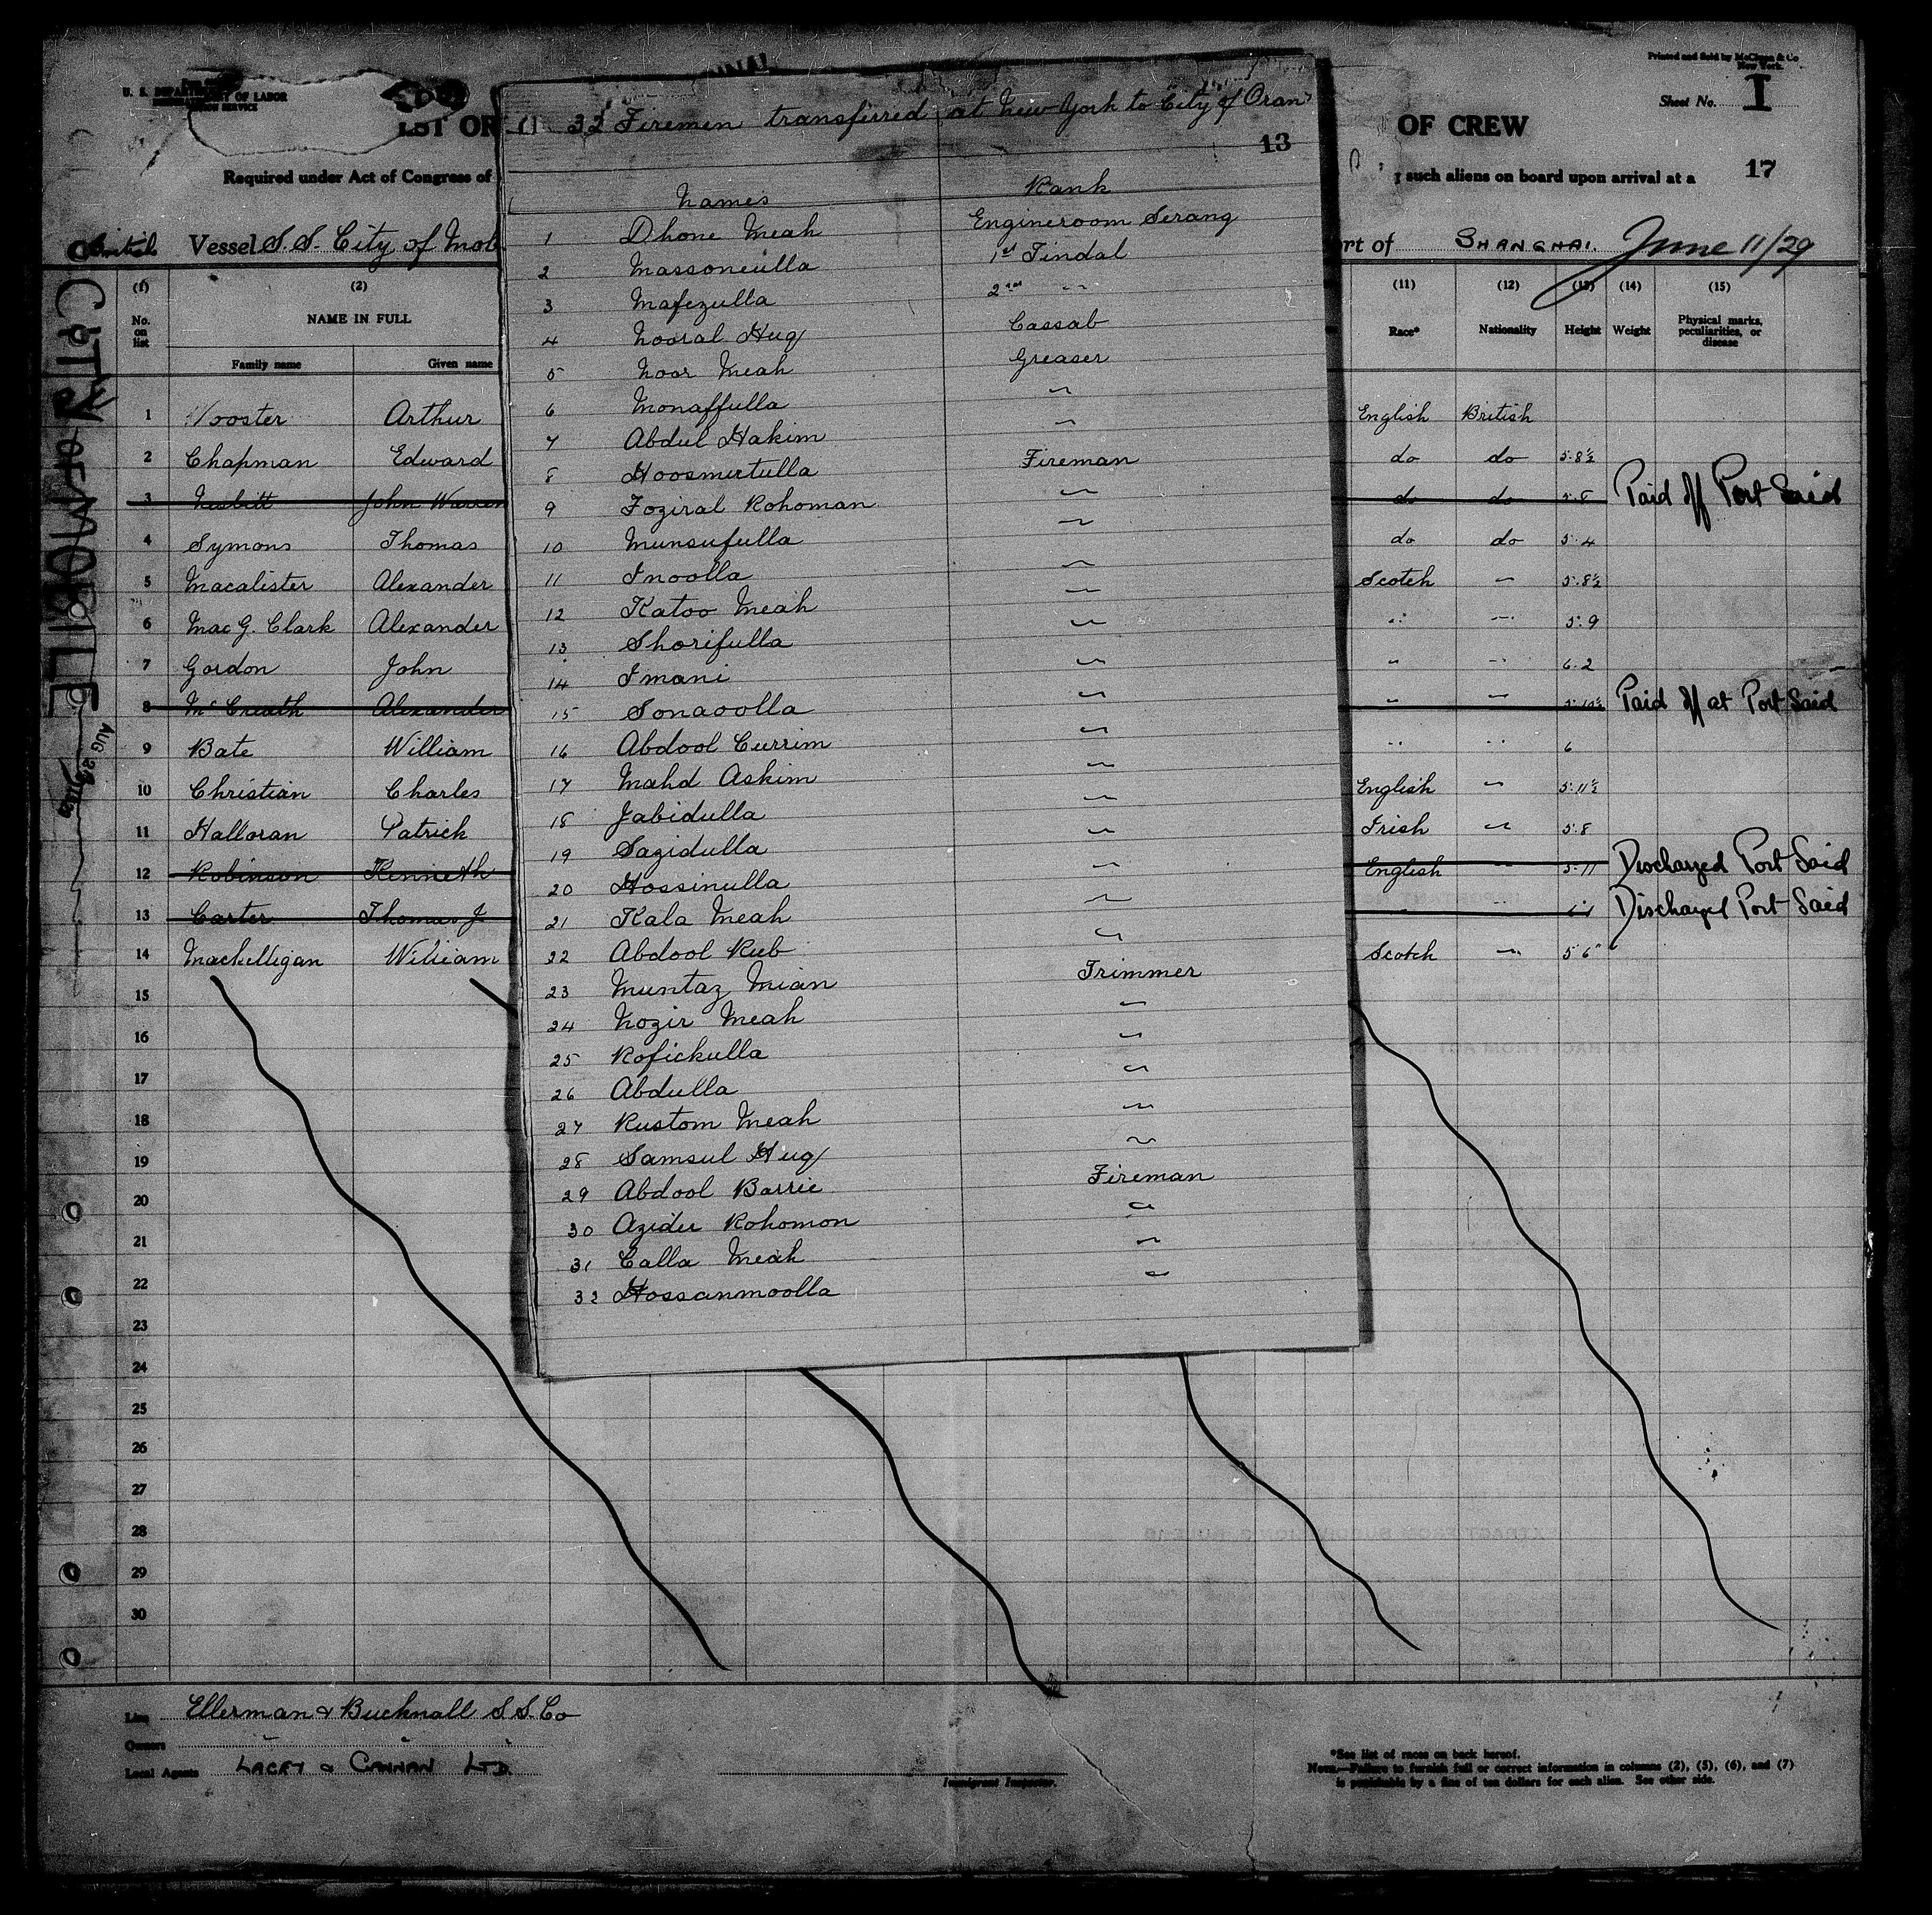 Printed and Sold by McClunn & Co
New York.
U. S. DEPARTMENT OF LABOR
Sheet No. I
LIST OR
OF CREW
Required under Act of Congress of
such aliens on board upon arrival at a
17
British Vessel S.S. City of Mob
rt of SHANGHAI. June 11/29
CITY OF MOBILE
AUG 23
32 Firemen transferred at New York to City of Oran
13
Names Rank
1 Dhone Meah Engineroom Serang
2 Massoneulla 1st Tindal
3 Mafezulla 2nd "
4 Nooral Huq Cassab
5 Noor Meah Greaser
6 Monaffulla "
7 Abdul Hakim "
8 Hoosmertulla Fireman
9 Foziral Rohoman "
10 Munsufulla "
11 Inoolla "
12 Katoo Meah "
13 Shorifulla "
14 Imani "
15 Sonaoolla "
16 Abdool Currim "
17 Mahd Askim "
18 Jabidulla "
19 Sazidulla "
20 Hossinulla "
21 Kala Meah "
22 Abdool Rub "
23 Muntaz Mian Trimmer
24 Nozir Meah "
25 Rofickulla "
26 Abdulla "
27 Rustom Meah "
28 Samsul Huq "
29 Abdool Barrie Fireman
30 Azider Rohomon "
31 Calla Meah "
32 Hossanmoolla "
(1) (2) (11) (12) (13) (14) (15)
No. on list NAME IN FULL Race* Nationality Height Weight Physical marks, peculiarities, or disease
Family name Given name
1 Wooster Arthur English British
2 Chapman Edward do do 5·8½
3 Nesbitt John Warren do do 5·8 Paid off Port Said
4 Symons Thomas do do 5·4
5 Macalister Alexander Scotch " 5·8½
6 Mac G. Clark Alexander " " 5·9
7 Gordon John " " 6·2
8 McCreath Alexander " " 5·10½ Paid off at Port Said
9 Bate William " " 6
10 Christian Charles English " 5·11½
11 Halloran Patrick Irish " 5·8
12 Robinson Kenneth English " 5·11 Discharged Port Said
13 Carter Thomas J " " 6·1 Discharged Port Said
14 Mackelligan William Scotch " 5·6
15
16
17
18
19
20
21
22
23
24
25
26
27
28
29
30
Line Ellerman & Bucknall S.S. Co
Owners
Local Agents LACEY & CANNAN LTD.
Immigrant Inspector.
*See list of races on back hereof.
NOTE.—Failure to furnish full or correct information in columns (2), (5), (6), and (7)
is punishable by a fine of ten dollars for each alien. See other side.